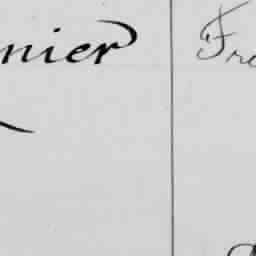 nier Fre